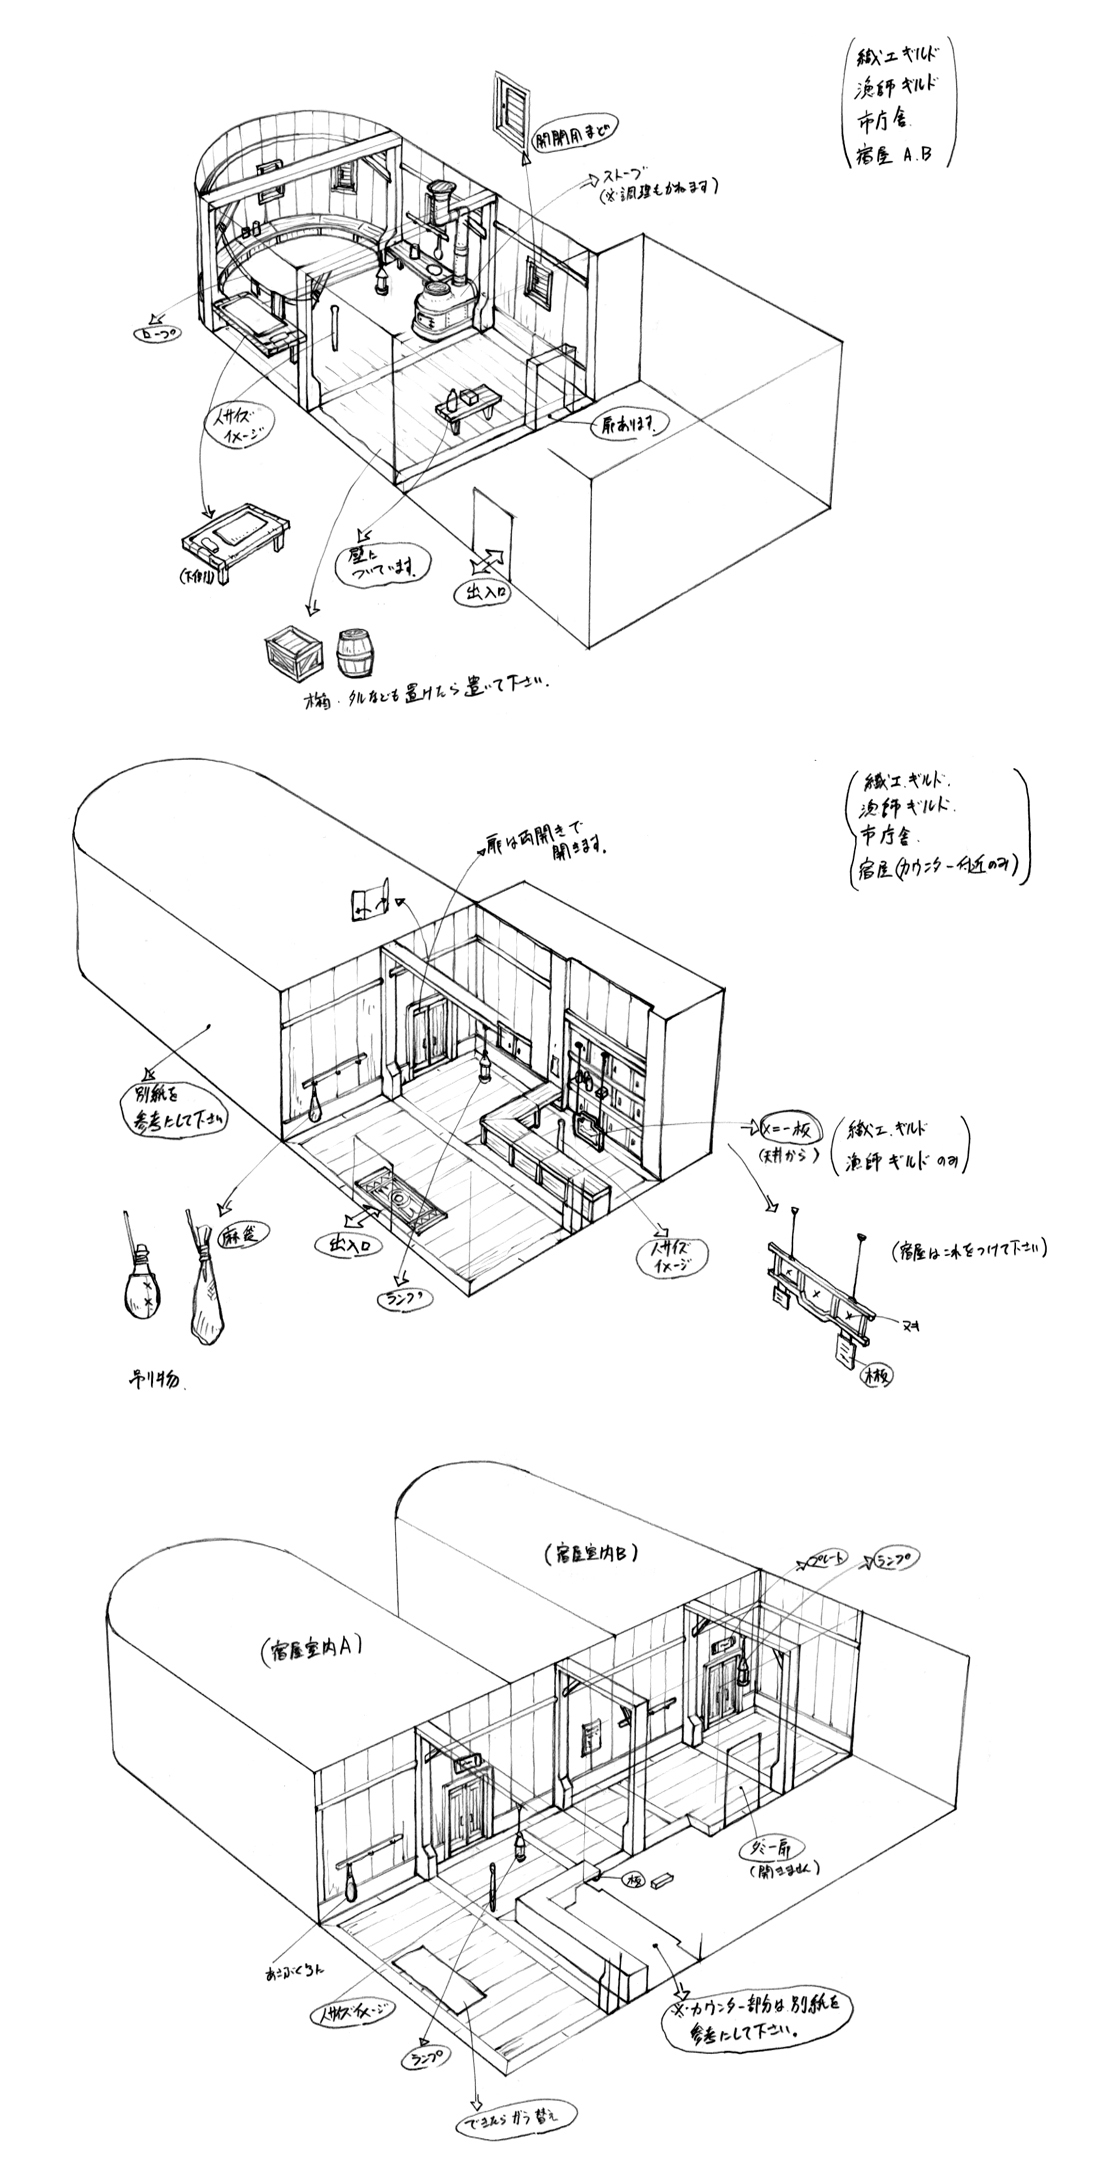 織工ギルド
漁師ギルド
市庁舎
宿屋 A.B
開閉用まど
ストーブ
(※調理もかねます)
ロープ
人サイズ
イメージ
扉あります。
壁に
ついています。
出入口
木箱・タルなども置けたら置いて下さい。
織工.ギルド.
漁師ギルド.
市庁舎.
宿屋(カウンター付近のみ)
扉は両開きで
開きます。
別紙を
参考にして下さい
メニー板
(天井から)
織工.ギルド
漁師ギルドのみ
出入口
人サイズ
イメージ
ランプ
麻袋
吊り物.
(宿屋はこれをつけて下さい)
ヌキ
木板
(宿屋室内B)
プレート
ランプ
(宿屋室内A)
ダミー扉
(開きません)
板
あさぶくろん
人サイズイメージ
ランプ
※カウンター部分は別紙を
参考にして下さい。
できたらガラ替え